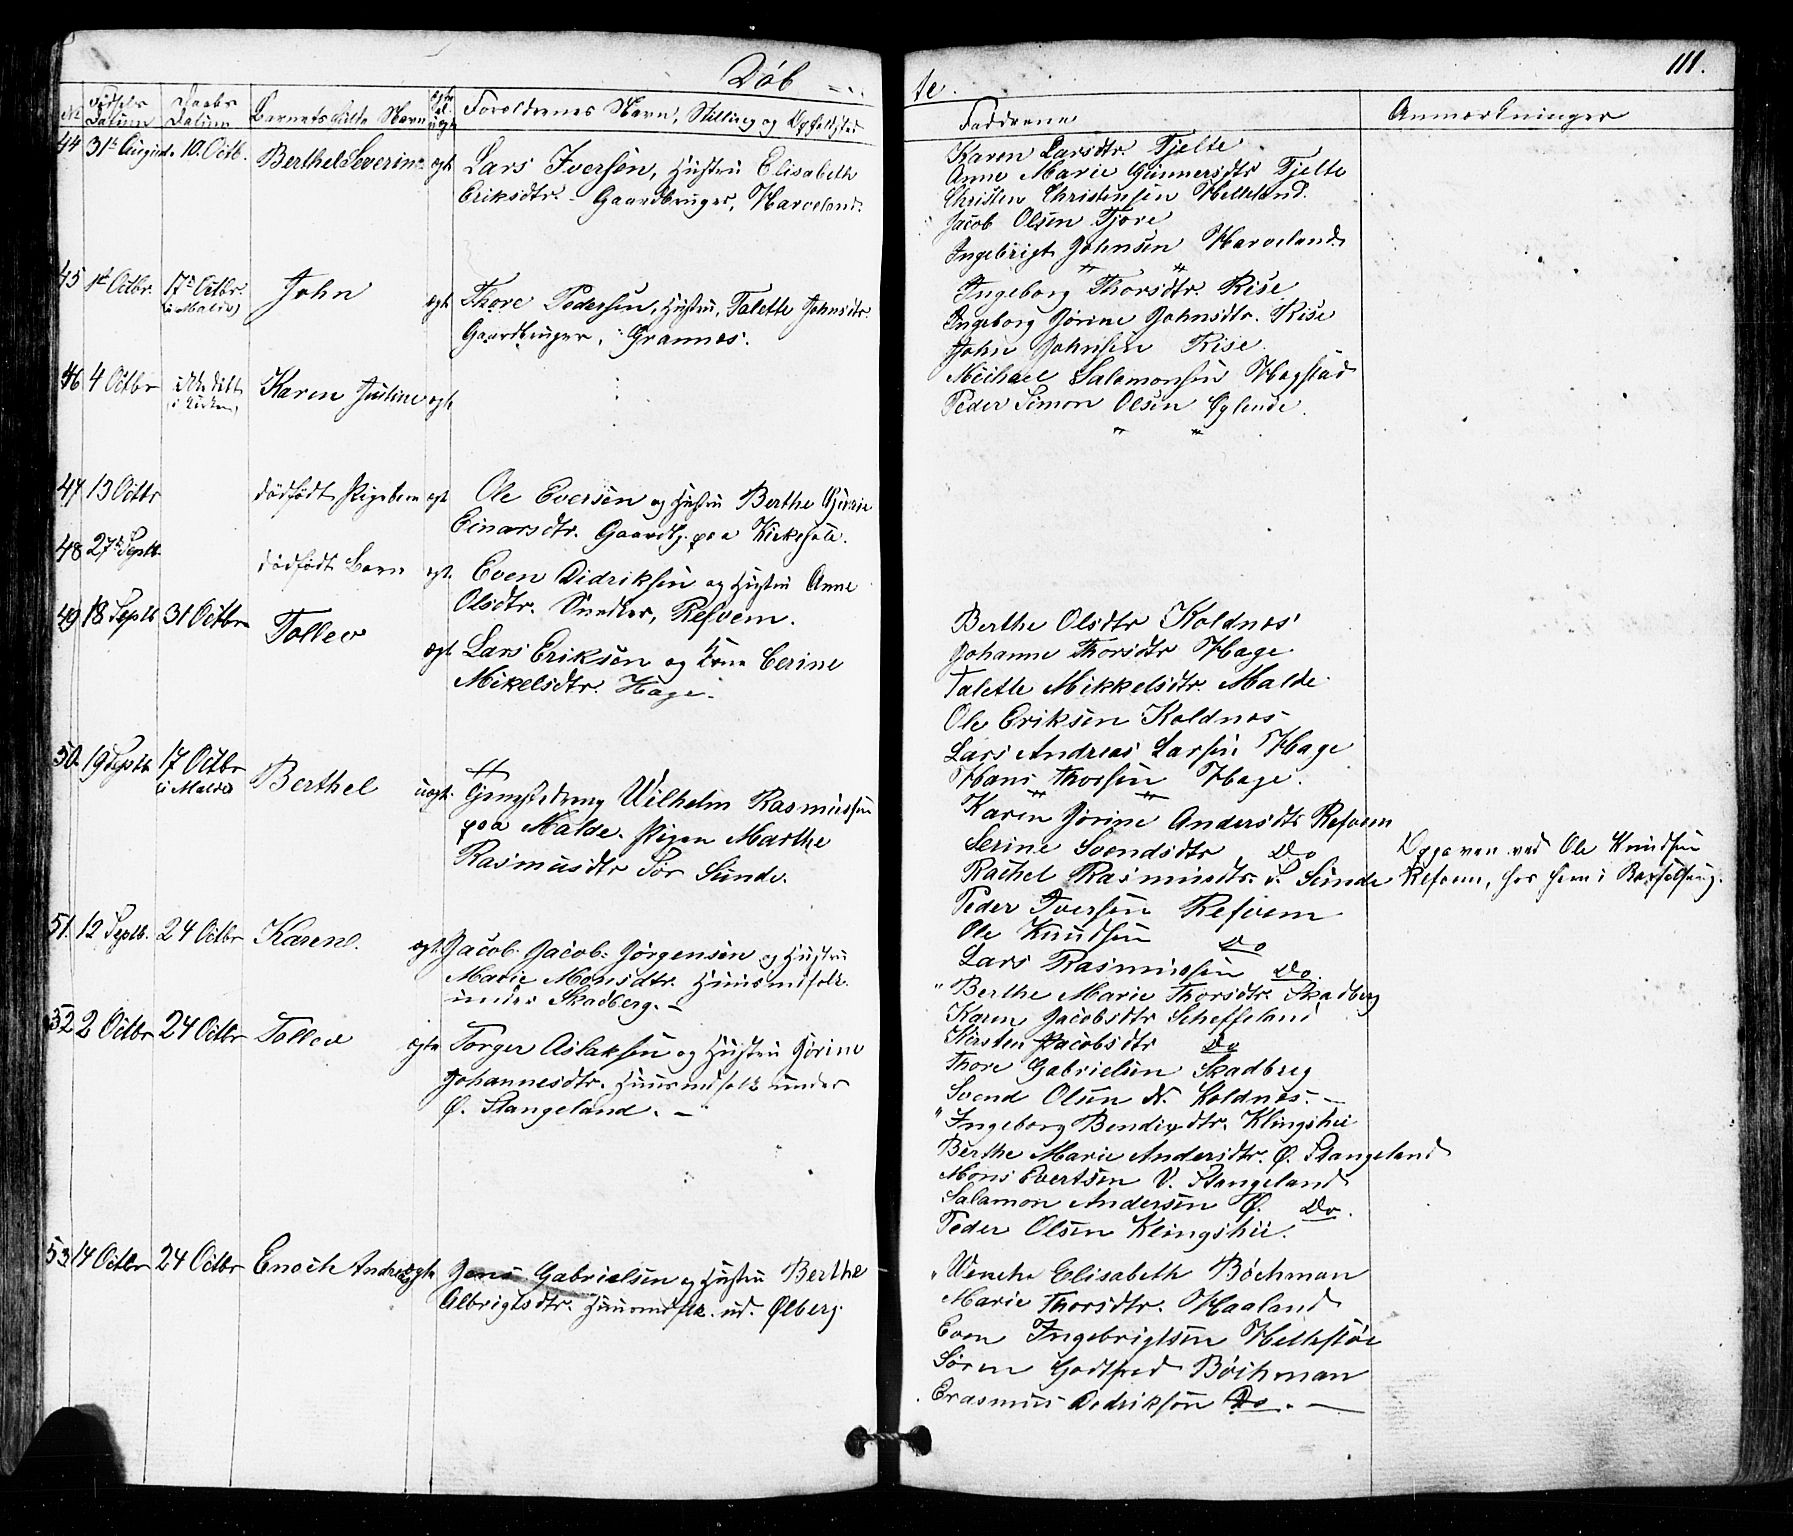 Döb - - -
te.
111.
No
Fødsels Datum
Daabs Datum
Barnets fulde Navn
Forældrenes Navn, Stilling og Opholdsted
Fadderne
Anmærkninger
44 31te August 10. Octb. Berthel Severine ægt Lars Iversen, Hustru Elisabeth
Eriksdtr. Gaardbruger, Harveland.
Karen Larsdtr. Tjelte
Anne Marie Gunnersdtr Tjelte
Christen Christensen Helleland.
Jacob Olsen Tjore
Ingebrigt Johnsen Harveland
45 1t Octbr. 17de Octbr. (i Malde) John ægt Thore Pedersen, Hustru, Talette Johnsdtr.
Gaardbruger, Grannes.
Ingeborg Thorsdtr. Rise
Ingeborg Jörine Johnsdtr. Rise
John Johnsen Rise
Michael Salamonsen Hogstad
Peder Simon Olsen
46 4 Octbr ikke døbt i Kirken Karen Justine ægt
47 13 Octbr dödfödt Pigebarn ægt Ole Eversen og Hustru Berthe
Einarsdtr. Gaardbr. paa Kirkesole.
48 27de Septb. dödfödt Barn ægt. Even Didriksen og Hustru Anne
Olsdtr. Snedker, Refvem.
49 18 Septb 31 Octbr Tollev ægt Lars Eriksen og Kone Cerine
Mikelsdtr. Hage.
Berthe Olsdtr Koldnes
Johanne Thorsdtr Hage
Talette Mikkelsdtr. Malde
Ole Eriksen Koldnes
Lars Andreas Larsen Hage
Hans Thorsen Hage.
50. 19 Septb. 17 Octbr (i Malde) Berthel uægt. Wilhelm Rasmussen
paa Malde. Pigen Marthe
Rasmusdtr Sör Sunde.
Karen Jörine Andersdtr Refvem
Serine Svendsdtr Do
Rachel Rasmusdtr. S. Sunde
Peder Iversen Refvem
Ole Knudsen Do
Lars Rasmussen Do
Opgaven ved Ole Knudsen
Refvem, hos hem i Barselseng.
51. 12 Septb. 24 Octbr Karen. ægt. Jacob Jacob: Jörgensen og Hustru
Marie Monsdtr. Huusmdfolk
under Skadberg. -
" Berthe Marie Thorsdtr. Skadberg
Karen Jacobsdtr Scheffeland
Kirsten Jacobsdtr Do
Thore Gabrielsen Skadberg
Svend Olsen N. Koldnes. -
52 2 Octbr 24 Octbr Tollev ægte Torger Aslaksen og Hustru Jörine
Johannesdtr. Huusmdfolk under
Ø. Stangeland. -
" Ingeborg Bendixdtr. Klingshei
Berthe Marie Andersdtr. Ø. Stangeland
Mons Evertsen V. Stangeland
Salamon Andersen Ø. Do.
Peder Olsen Klingshei.
53 14 Octbr 24 Octbr Enoch Andreas ægte Jens Gabrielsen og Hustru Berthe
Albrigtsdtr. Huusmdflk. ud. Ølberg
" Wenche Elisabeth Böchman
Marie Thorsdtr. Haaland
Even Ingebrigtsen Hellestöe
Sören Godtfred Böchman
Erasmus Dedriksen Do. -